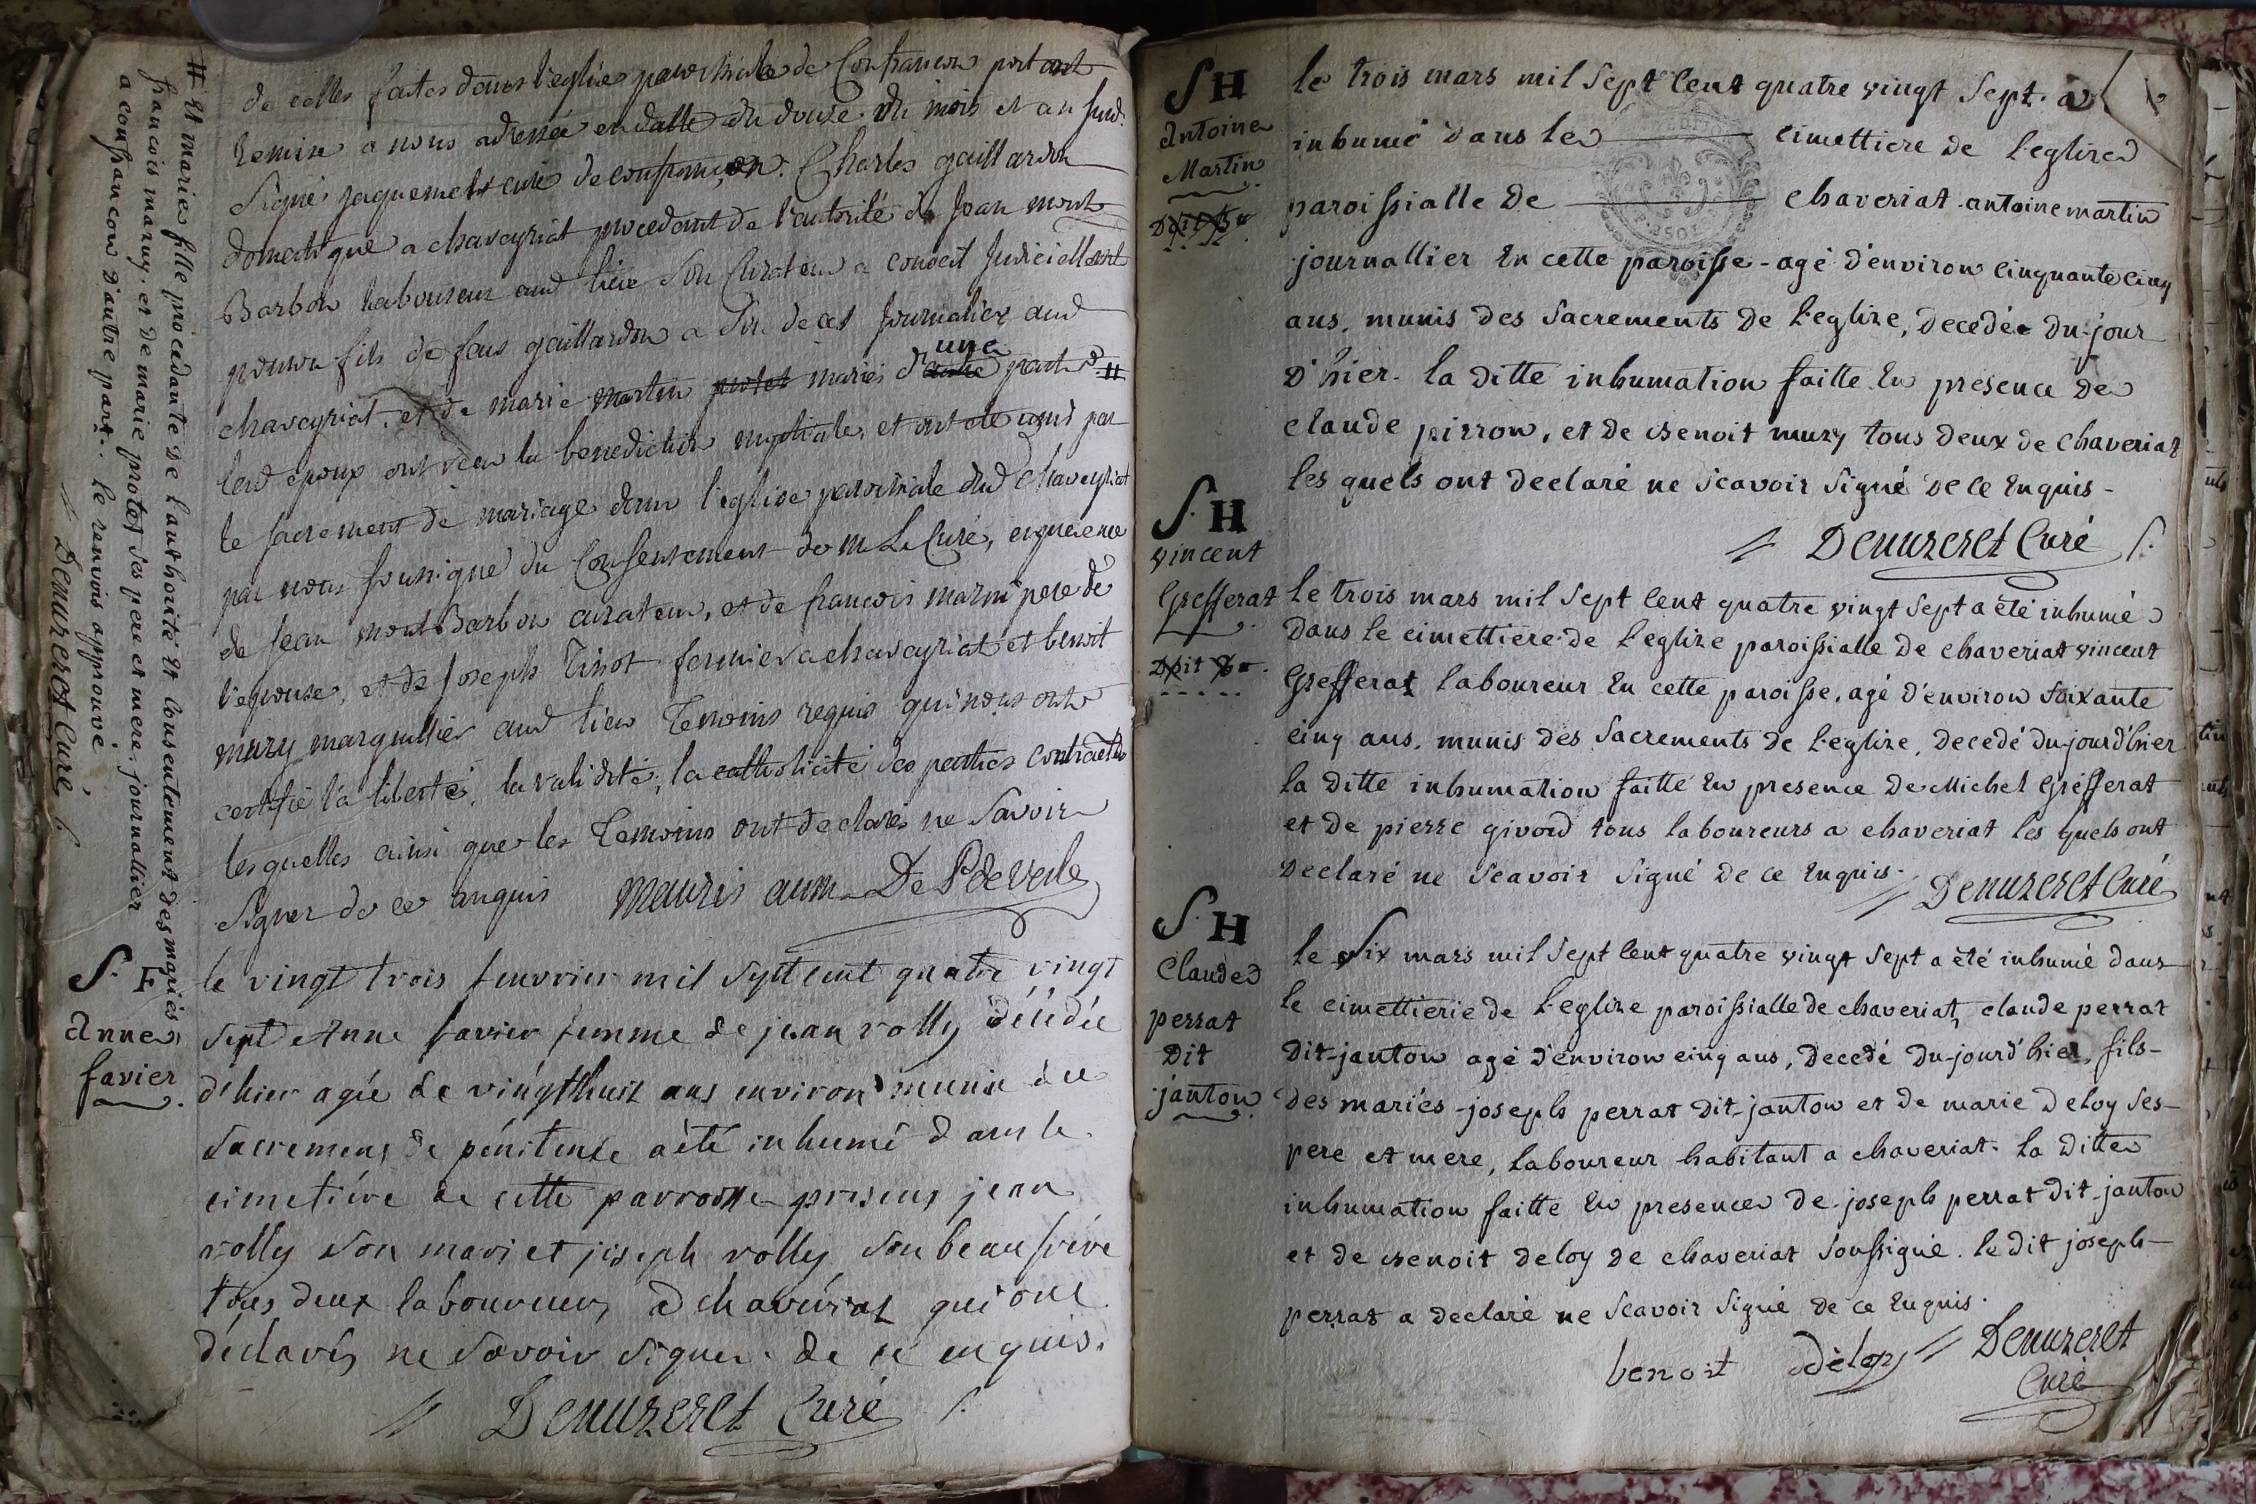 de celles faites dans l'eglise paroissiale de Confrancon portant
Remise a nous adressée en datte du douze du mois et an susd.
Signé jaquemet curé de confrançon. Charles gaillardon
domestique a chaveyriat procedant de l'autorité de Jean mont
Barbon laboureur aud lieu Son Curateur a conseil Judiciellement
pourvu fils de feus gaillardon a Son deces Journalier aud
chaveyriat, et de marie martin mariés d'une part #
lesd epoux ont recu la benediction nuptiale, et ont eté unis par
le sacrement de mariage dans l'eglise paroissiale dud Chaveyriat
par nous soussigné du Consentement de M. Le Curé, en presence
de Jean mont Barbon curateur, et de francois marmy pere de
l'epouse, et de Joseph Tinot fermier a chaveyriat et benoit
mury marguillier aud lieu Temoins requis qui nous ont
certifié la liberté, la validité, la catholicité des parties contractes
lesquelles ainsi que les Temoins ont declarés ne Savoir
Signer de ce anquis Mauris aum. De P. de Vesle
# Et marie fille procedante de l'authorité Et Consentement des mariés
francois marmy. et de marie protet ses pere et mere. journallier
a confrancon d'autre part. le renvois approuvé
Denuzeret Curé
S. F
Anne
favier
le vingt trois feuvrier mil Sept cent quatre vingt
Sept Anne favier femme de jean rolly décédée
d'hier agée de vingthuit ans environ munie du
Sacrement de pénitence a été inhumé dans le
cimetiére de cette parroisse présens jean
rolly Son mari et joseph rolly Son beau frére
tous deux laboureurs a chavériat qui ont
déclarés ne Savoir Signer de ce enquis.
Denuzeret Curé
S H
Antoine
Martin
le trois mars mil Sept Cent quatre vingt Sept. a
inhumé dans le cimettiere de L'eglize
paroissialle de chaveriat antoine martin
journallier En cette paroisse - agé d'environ cinquante cinq
ans, munis des Sacrements de L'eglize, decedé du-jour
d'hier. la ditte inhumation faitte En presence de
claude pirron, et de Benoit mury tous deux de chaveriat
les quels ont declaré ne Scavoir Signé de Ce Enquis -
Denuzeret Curé
S. H
vincent
Grefferat
le trois mars mil Sept Cent quatre vingt Sept a été inhumé
dans le cimettiere de L'eglize paroissialle de chaveriat vincent
Grefferat laboureur En cette paroisse, agé d'environ Soixante
cinq ans, munis des Sacrements de L'eglize, decedé du-jourd'hier
la ditte inhumation faitte En presence de Michel Grefferat
et de pierre givord tous laboureurs a chaveriat les quels ont
declaré ne Scavoir Signé de ce Enquis.
Denuzeret Curé
S. H
Claude
perrat
dit
janton
le Six mars mil Sept Cent quatre vingt Sept a été inhumé dans
le cimettierie de L'eglize paroissialle de chaveriat, claude perrat
dit-janton agé d'environ cinq ans, decedé du-jourd'hier, fils-
des mariés -joseph perrat dit-janton et de marie deloy Ses-
pere et mere, laboureur habitant a chaveriat. la ditte
inhumation faitte En presence de joseph perrat dit-janton
et de Benoit deloy de chaveriat Soussigné. le dit joseph-
perrat a declaré ne Scavoir Signé de ce Enquis.
benoit deloy Denuzeret
Curé